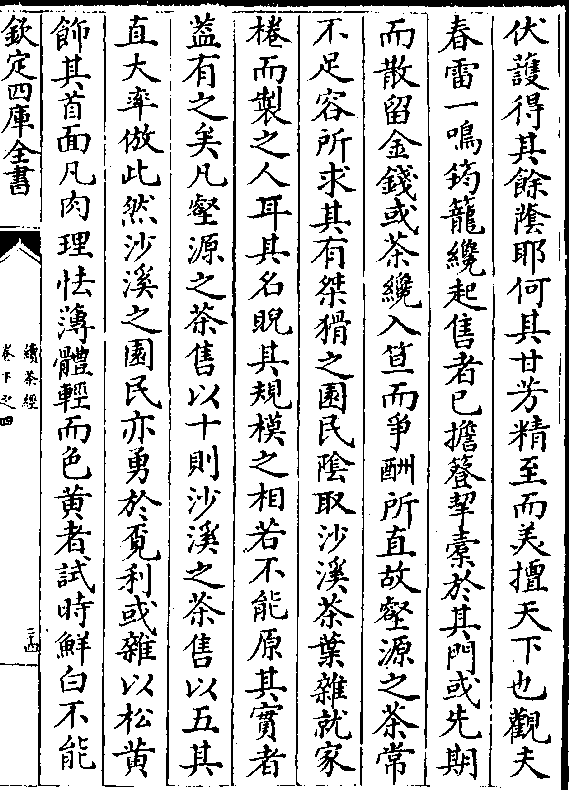 伏護得其餘蔭耶何其甘芳精至而美擅天下也觀夫
春雷一鳴筠籠纔起售者已擔簦挈橐於其門或先期
而散留金錢或茶纔入笪而爭酬所直故壑源之茶常
不足容所求其有桀猾之園民陰取沙溪茶葉雜就家
棬而製之人耳其名睨其規模之相若不能原其實者
蓋有之矣凡壑源之茶售以十則沙溪之茶售以五其
直大率倣此然沙溪之園民亦勇於覔利或雜以松黄
飾其首面凡肉理怯薄體輕而色黄者試時鮮白不能
欽定四庫全書
續茶經
卷下之四
二四